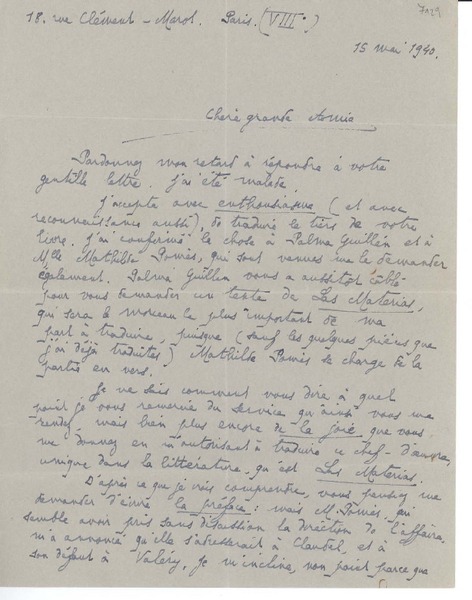 18. rue Clément-Marot. Paris. (VIIIe)
7029
15 mai 1940.
Chère grande Amie
Pardonnez mon retard à répondre à votre
gentille lettre. J'ai été malade.
J'accepte avec enthousiasme (et avec
reconnaissance aussi), de traduire le tiers de votre
livre. J'ai confirmé la chose à Palma Guillén et à
Mlle Mathilde Pomès, qui sont venues me le demander
également. Palma Guillén vous a aussitôt câblé
pour vous demander un texte de Las Materias,
qui sera le morceau le plus important de ma
part à traduire, puisque (sauf les quelques pièces que
j'ai déjà traduites) Mathilde Pomès se charge de la
partie en vers.
Je ne sais comment vous dire à quel
point je vous remercie du service qu'ainsi vous me
rendez, mais bien plus encore de la joie que vous
me donnez en m'autorisant à traduire ce chef-d'œuvre,
unique dans la littérature, qu'est Las Materias.
D'après ce que je crois comprendre, vous pensez me
demander d'écrire la préface: mais M. Pomès, qui
semble avoir pris sans discussion la direction de l'affaire,
m'a annoncé qu'elle s'adresserait à Claudel, et à
son défaut à Valéry. Je m'incline, non point parce que